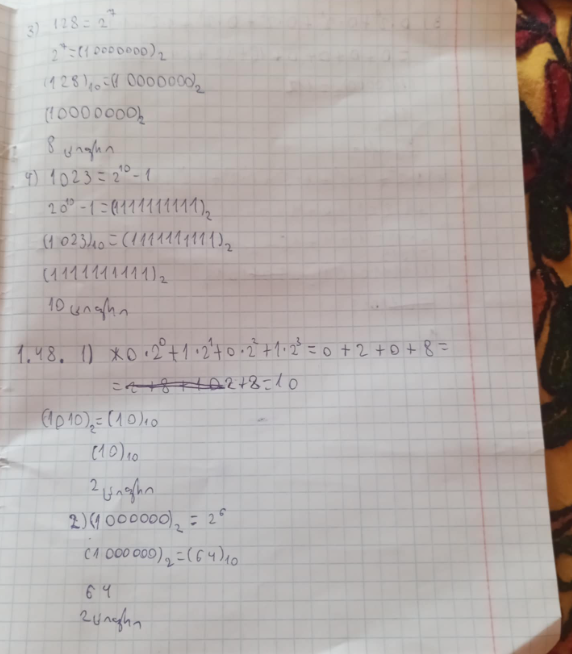 3) 128 = 2⁷
2⁷=(10000000)₂
(128)₁₀=(10000000)₂
(10000000)₂
8 նիշ
4) 1023 = 2¹⁰-1
20¹⁰-1=(1111111111)₂
(1023)₁₀=(1111111111)₂
(1111111111)₂
10
1.48. 1) 0·2⁰+1·2¹+0·2²+1·2³=0+2+0+8=
=2+8=10
(1010)₂=(10)₁₀
(10)₁₀
2
2)(1000000)₂=2⁶
(1000000)₂=(64)₁₀
64
2